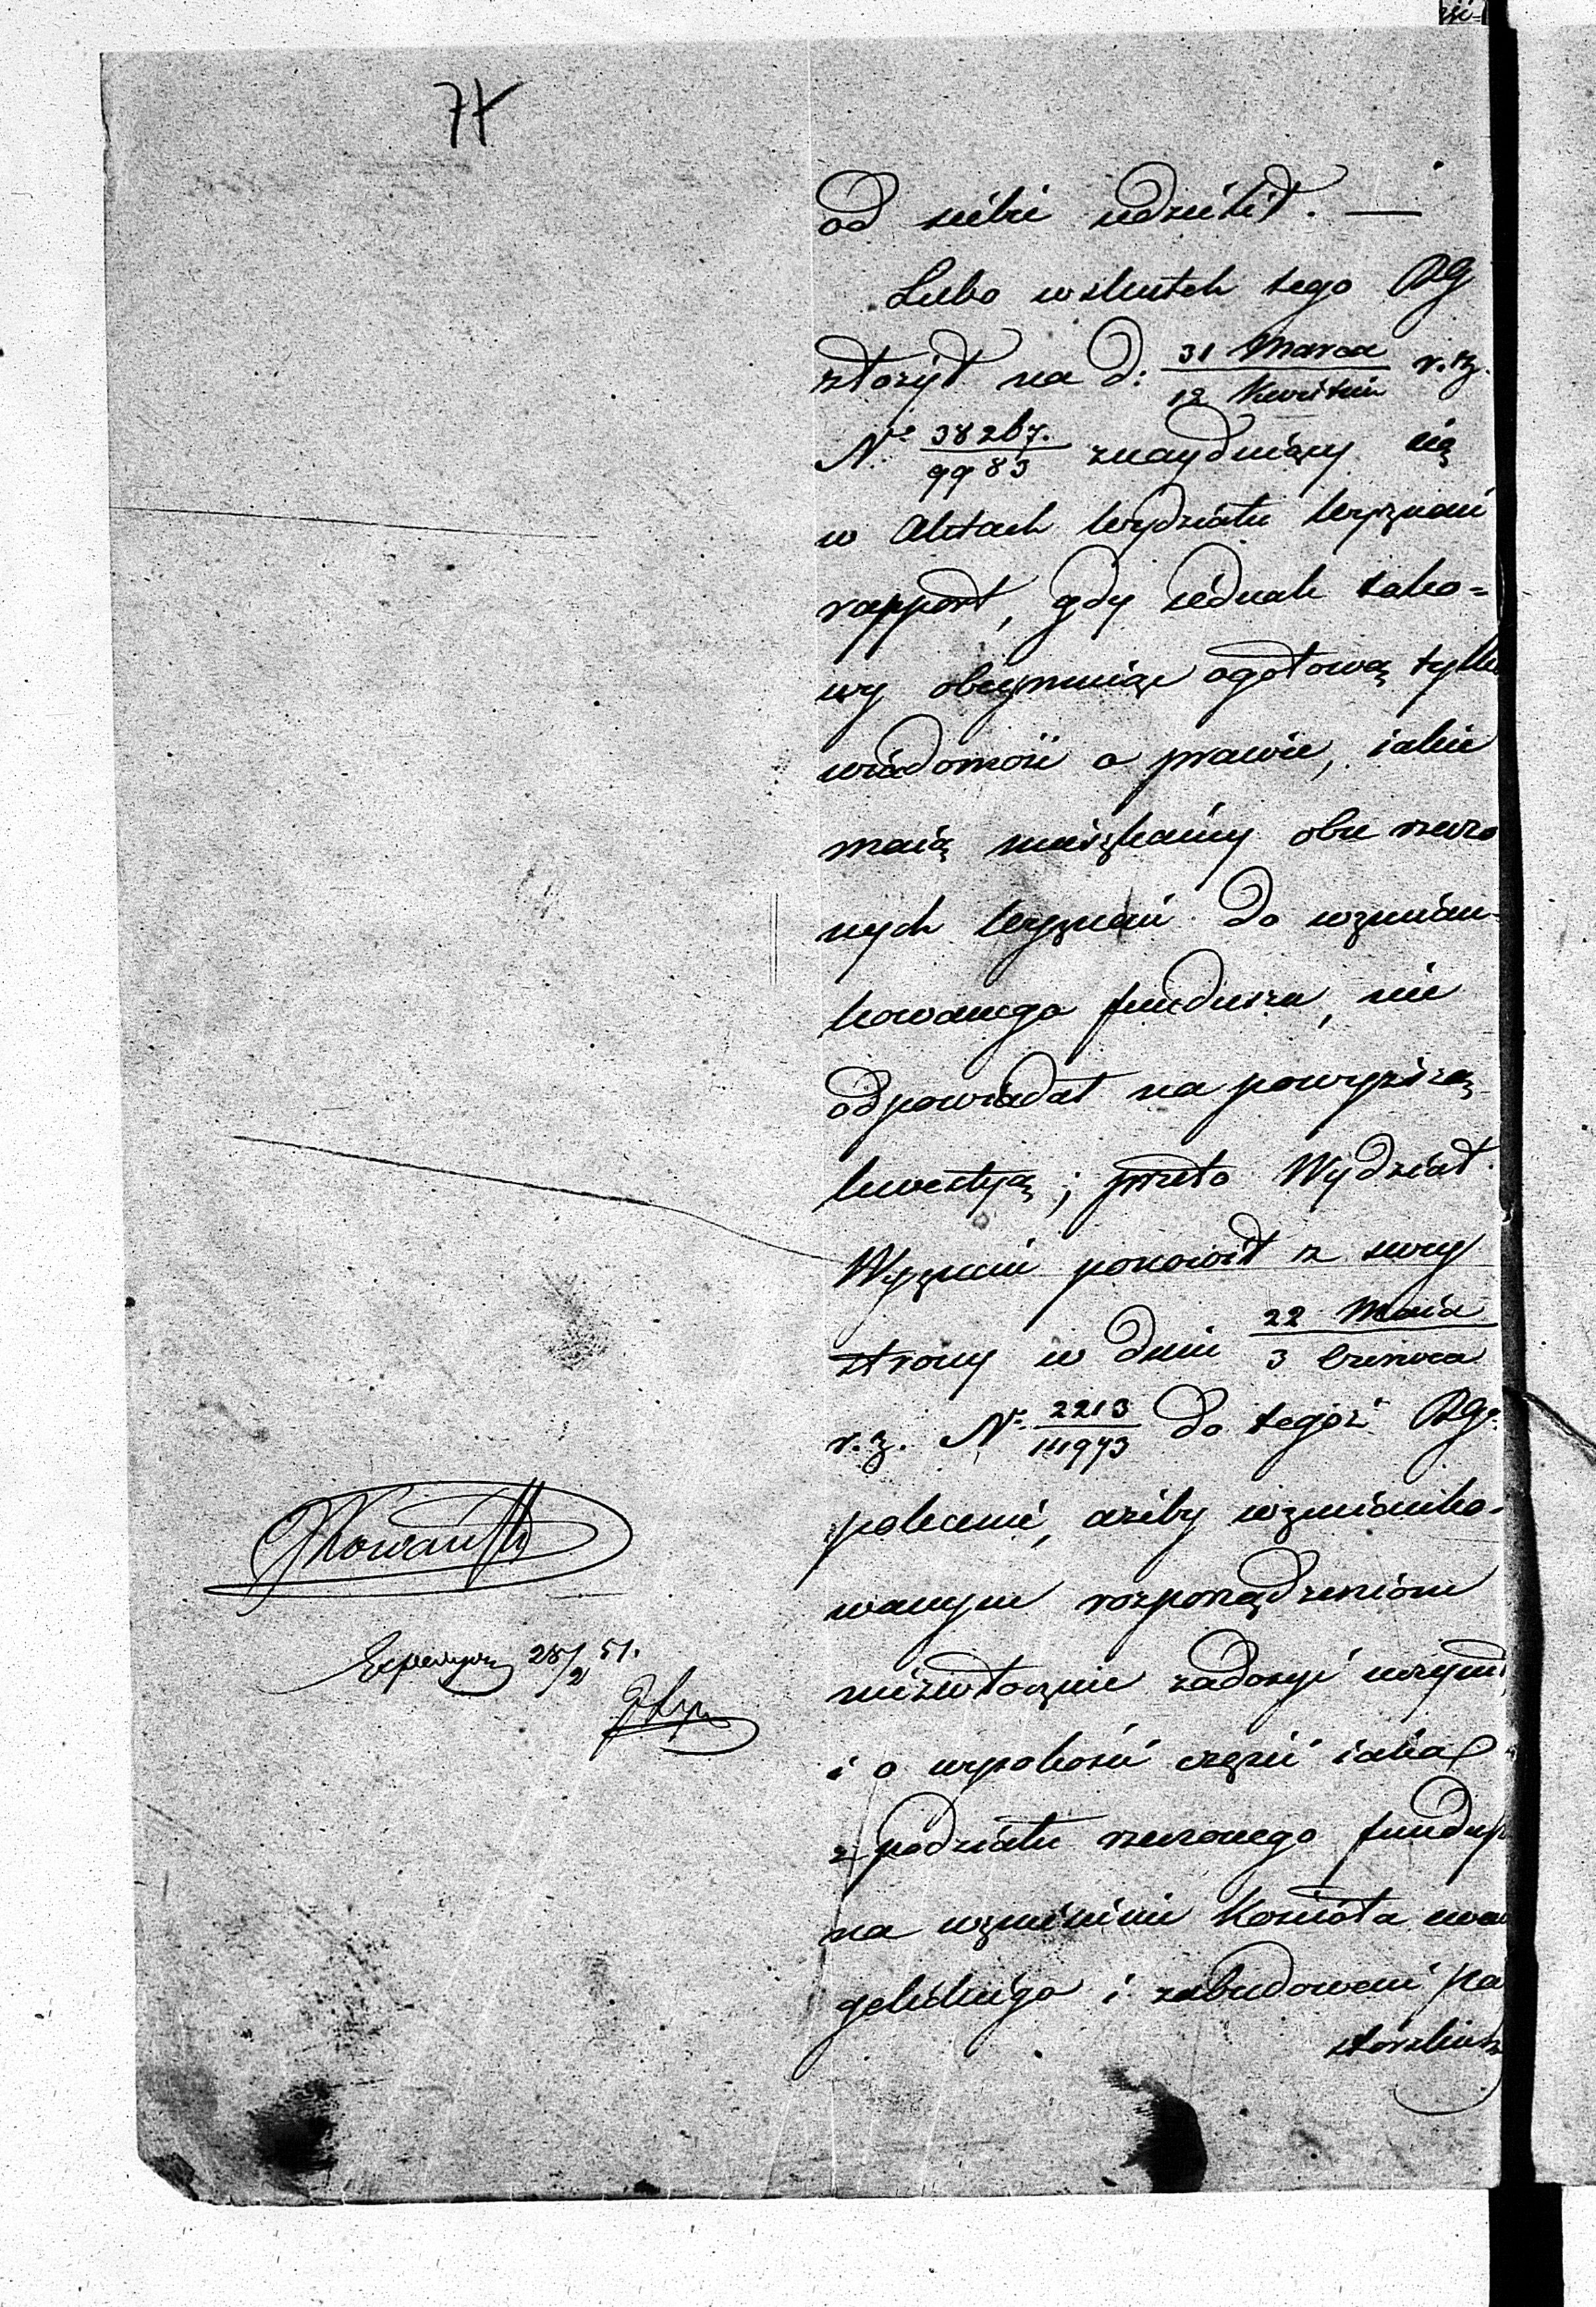 74
od siebie udzielił. —
Lubo wskutek tego RG
złożył na d: 31 Marca / 12 Kwietnia r. z.
N° 38267. / 9983 znayduiący się
w Aktach Wydziału Wyznań
rapport, gdy iednak tako=
wy obeymuiąc ogółową tylko
wiadomość o prawie, iakie
maią mieszkańcy obu rzeczo
nych Wyznań do wzmian-
kowanego funduszu, nie
odpowiadał na powyższą
kwestyą; przeto Wydział
Wyznań ponowił z swey
strony w dniu 22 Maia / 3 Czerwca
r. z. N° 2213 / 14973 do tegoż RGo
polecenie, ażeby wzmianko-
wanym rozporządzeniom
niezwłocznie zadosyć uczynił,
i o wysokość części iaka
z podziału rzeczonego fundusz
na wzniesienie Kościoła ewan
gelickiego i zabudowań pa
storskich
28/2 51.